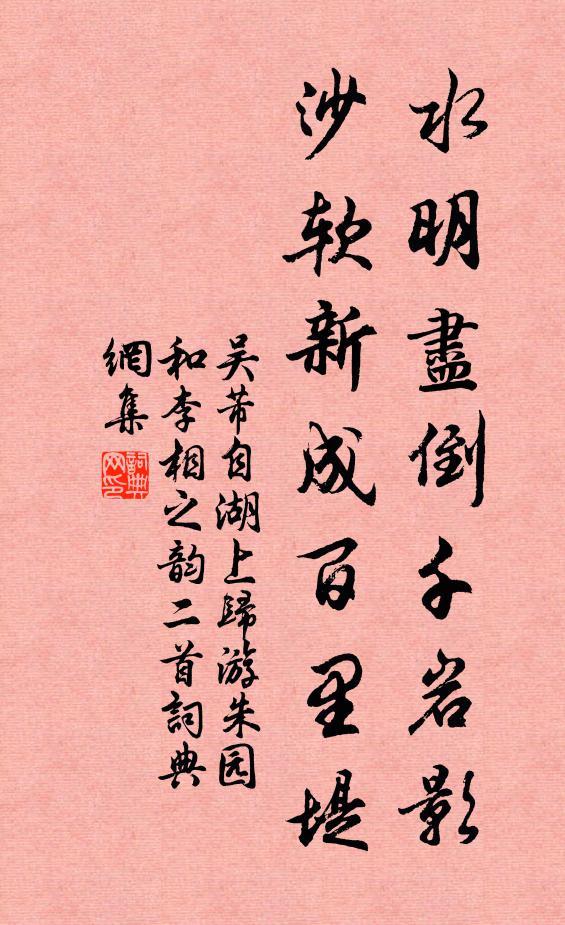 水明盡倒千岩影
沙软新成百里堤
吴芾自湖上歸游朱园
和李相之韵二首詞典
網集
詞典網印